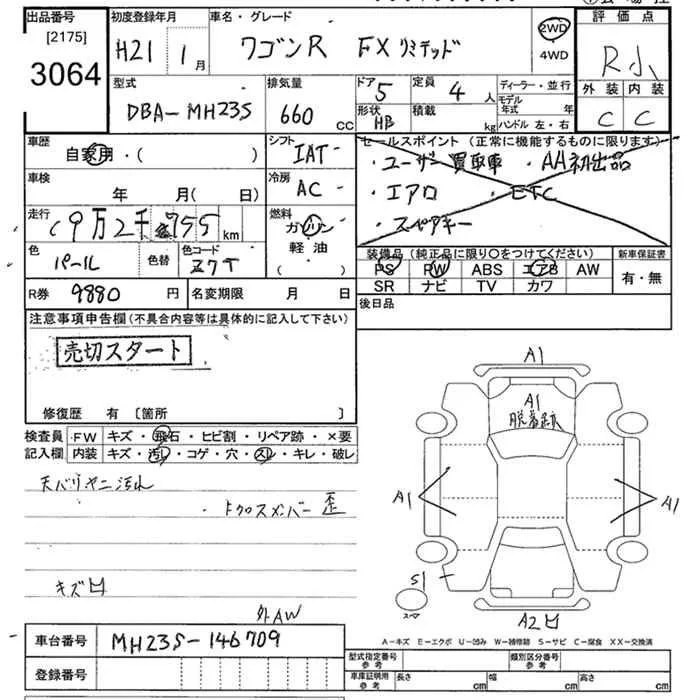 出品番号 初度登録年月 車名・グレード 評価点
[2175]
3064
H21 1月 ワゴンR FXリミテッド 2WD・4WD R小
型式 排気量 ドア 5 定員 4人 ディーラー・並行 外装 内装
DBA-MH23S 660 CC 形状 HB 積載 kg モデル年式 年 ハンドル 左・右 C C
車歴 自家用・( ) シフト IAT-
セールスポイント (正常に機能するものに限ります)
・ユーザー買取車 ・AA初出品
車検 年 月(日) 冷房 AC-
・エアロ ・ETC
・スペアキー
走行 9万2千755km 燃料 ガソリン 軽油 ・( )
色 パール 色替 色コード Z7T
装備品 (純正品に限り○をつけてください) 新車保証書
PS PW ABS エアB AW 有・無
SR ナビ TV カワ
R券 9880円 名変期限 月 日 後日品
注意事項申告欄(不具合内容等は具体的に記入して下さい)
売切スタート
修復歴 有 〔箇所 〕
検査員 FW キズ・飛石・ヒビ割・リペア跡・×要
記入欄 内装 キズ・汚レ・コゲ・穴・スレ・キレ・破レ
天バリヤニ汚れ
・トクロスメンバー歪
キズ凹
外AW
A1
A1
脱着跡
A1 A1
S1
スペア
A2凹
A-キズ E-エクボ U-凹み W-補修跡 S-サビ C-腐食 XX-交換済
車台番号 MH23S-146709
型式指定番号 参考 類別区分番号 参考
登録番号
車庫証明用 参考 長さ cm 幅 cm 高さ cm